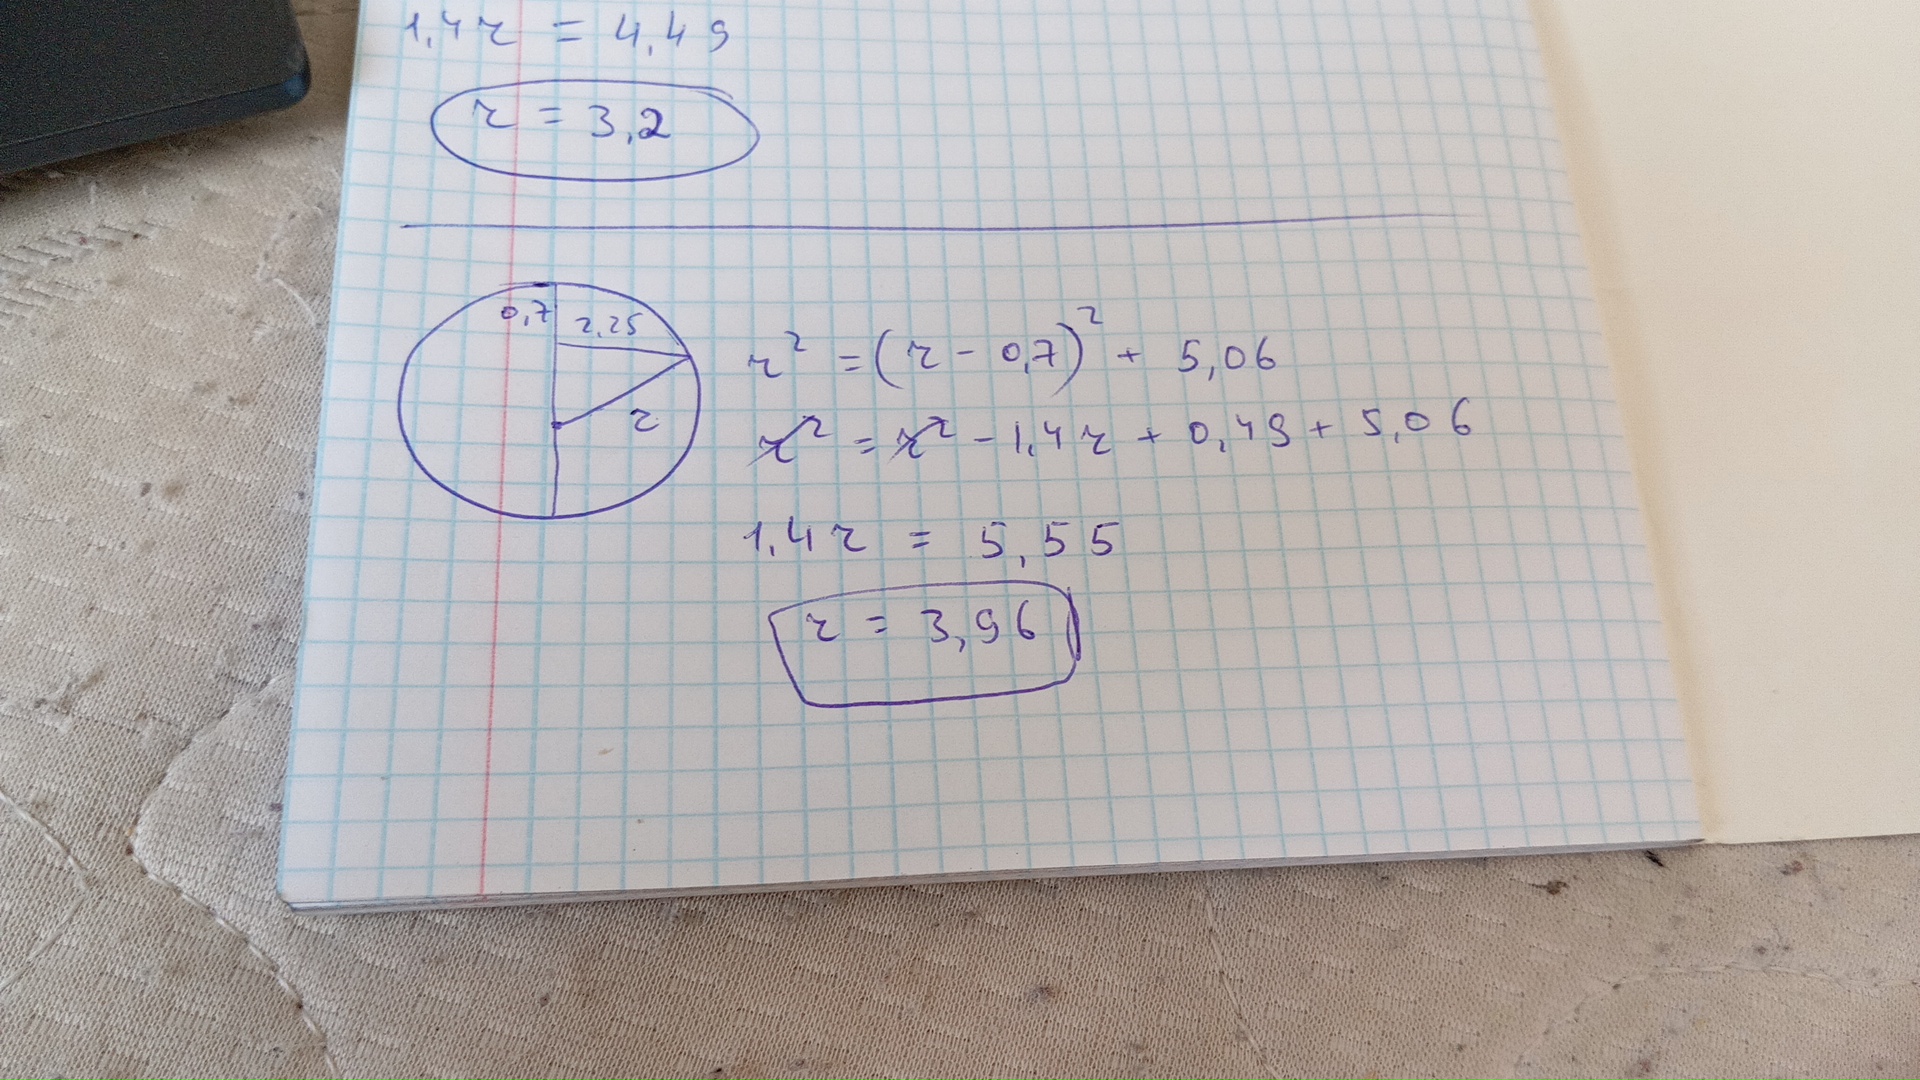 1,4r = 4,49
r = 3,2
0,7
2,25
r
r² = (r - 0,7)² + 5,06
r² = r² - 1,4r + 0,49 + 5,06
1,4r = 5,55
r = 3,96